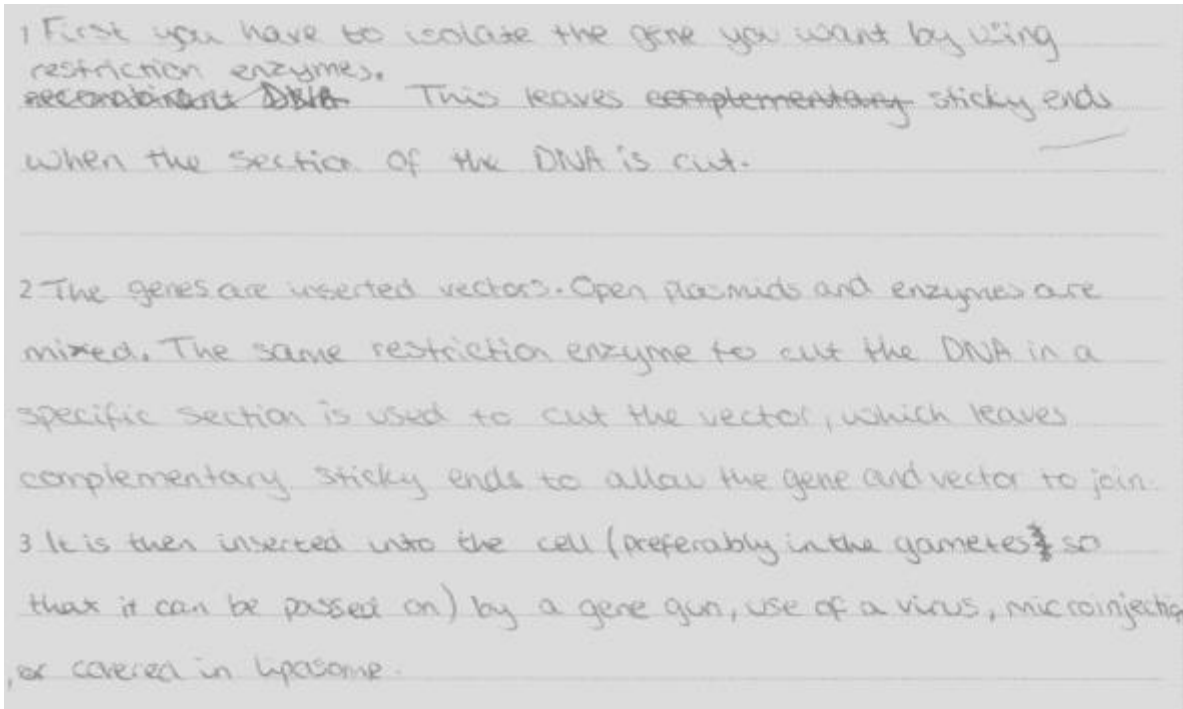 1 First you have to isolate the gene you want by using
restriction enzymes.
recombinant DNA This leaves complementary sticky ends
when the section of the DNA is cut.
2 The genes are inserted vectors. Open plasmids and enzymes are
mixed. The same restriction enzyme to cut the DNA in a
specific section is used to cut the vector, which leaves
complementary sticky ends to allow the gene and vector to join.
3 It is then inserted into the cell (preferably in the gametes so
that it can be passed on) by a gene gun, use of a virus, microinjection
, or covered in liposome.